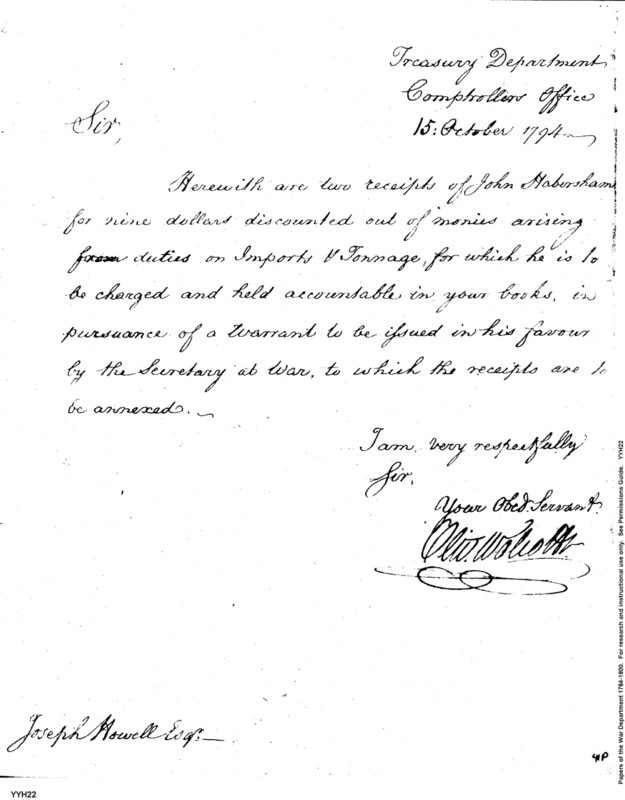 Treasury Department
Comptrollers Office
15: October 1794
Sir,
Herewith are two receipts of John Habersham
for nine dollars discounted out of monies arising
from duties on Imports & Tonnage, for which he is to
be charged and held accountable in your books, in
pursuance of a Warrant to be issued in his favour
by the Secretary at War, to which the receipts are to
be annexed.
I am, very respectfully
Sir,
Your Obed. Servant.
Oliv. Wolcott
Joseph Howell Esqr.
YYH22
Papers of the War Department 1784-1800. For research and instructional use only. See Permissions Guide. YYH22